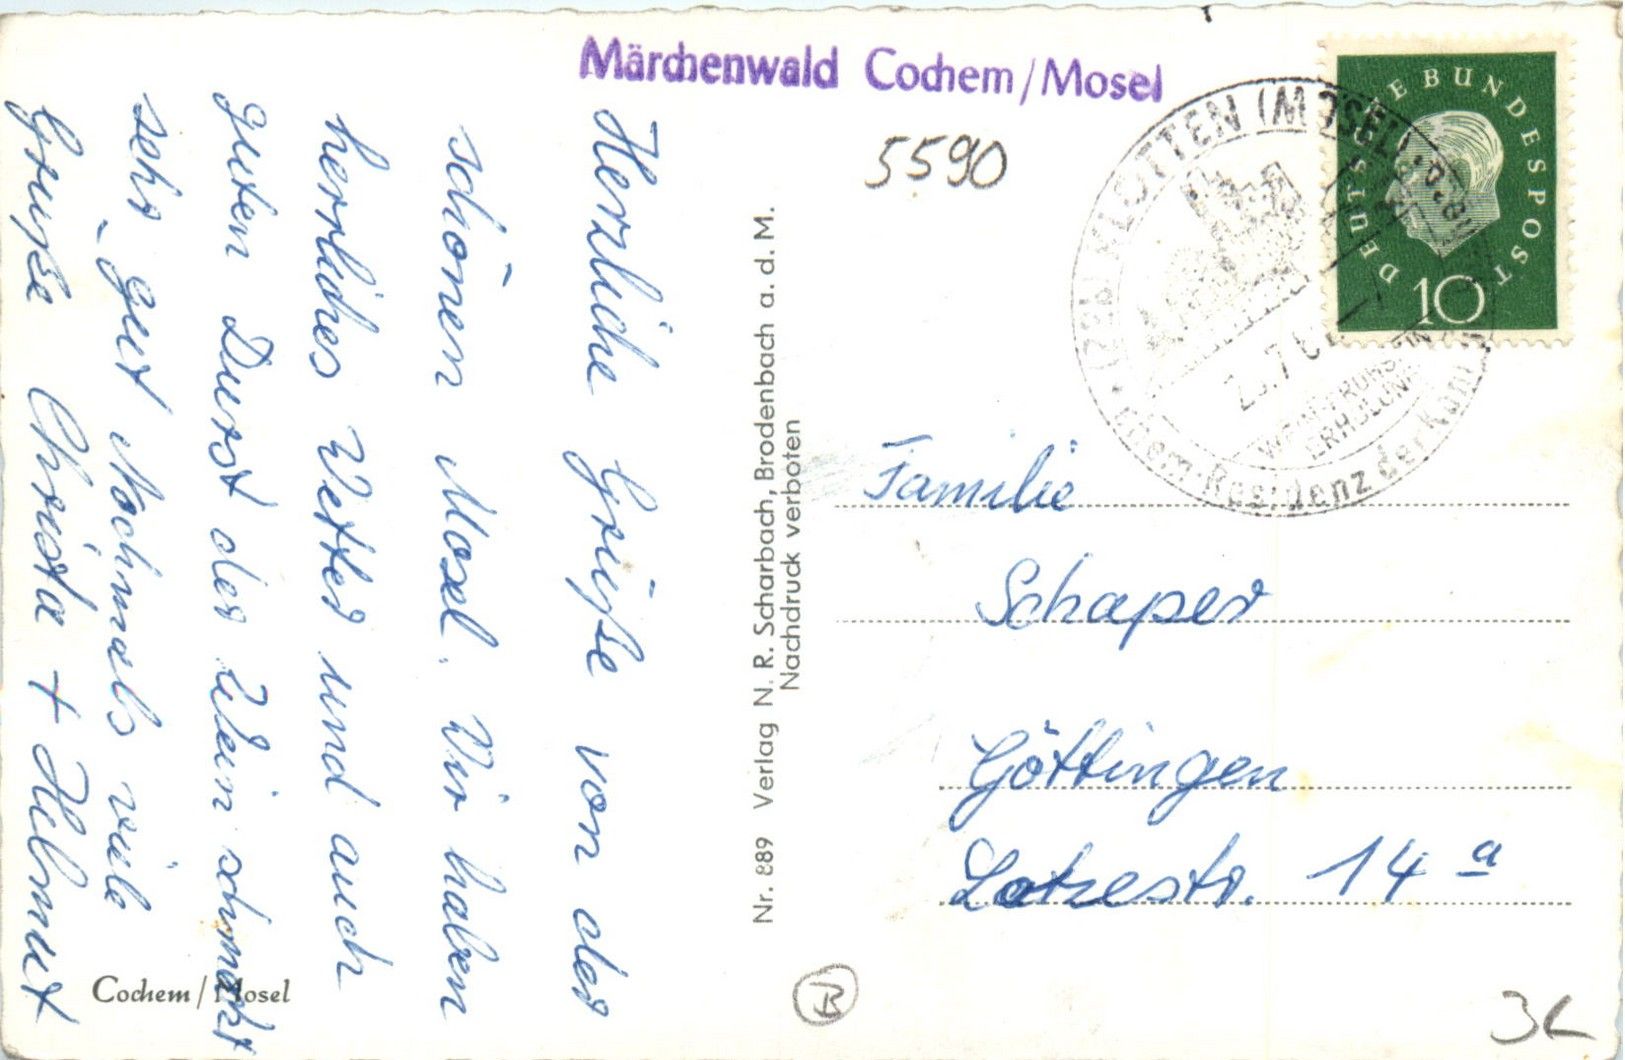 Märchenwald Cochem/Mosel
5590
DEUTSCHE BUNDESPOST
10
KLOTTEN (MOSEL)
Residenz der
Herzliche Grüße von der
schönen Mosel. Wir haben
herrliches Wetter und auch
guten Durst der Wein schmeckt
sehr gut Nochmals viele
Grüße Christa + Helmut
Nr. 889 Verlag N. R. Scharbach, Brodenbach a. d. M.
Nachdruck verboten
Familie
Schaper
Göttingen
Lotzestr. 14 a
Cochem/Mosel
B